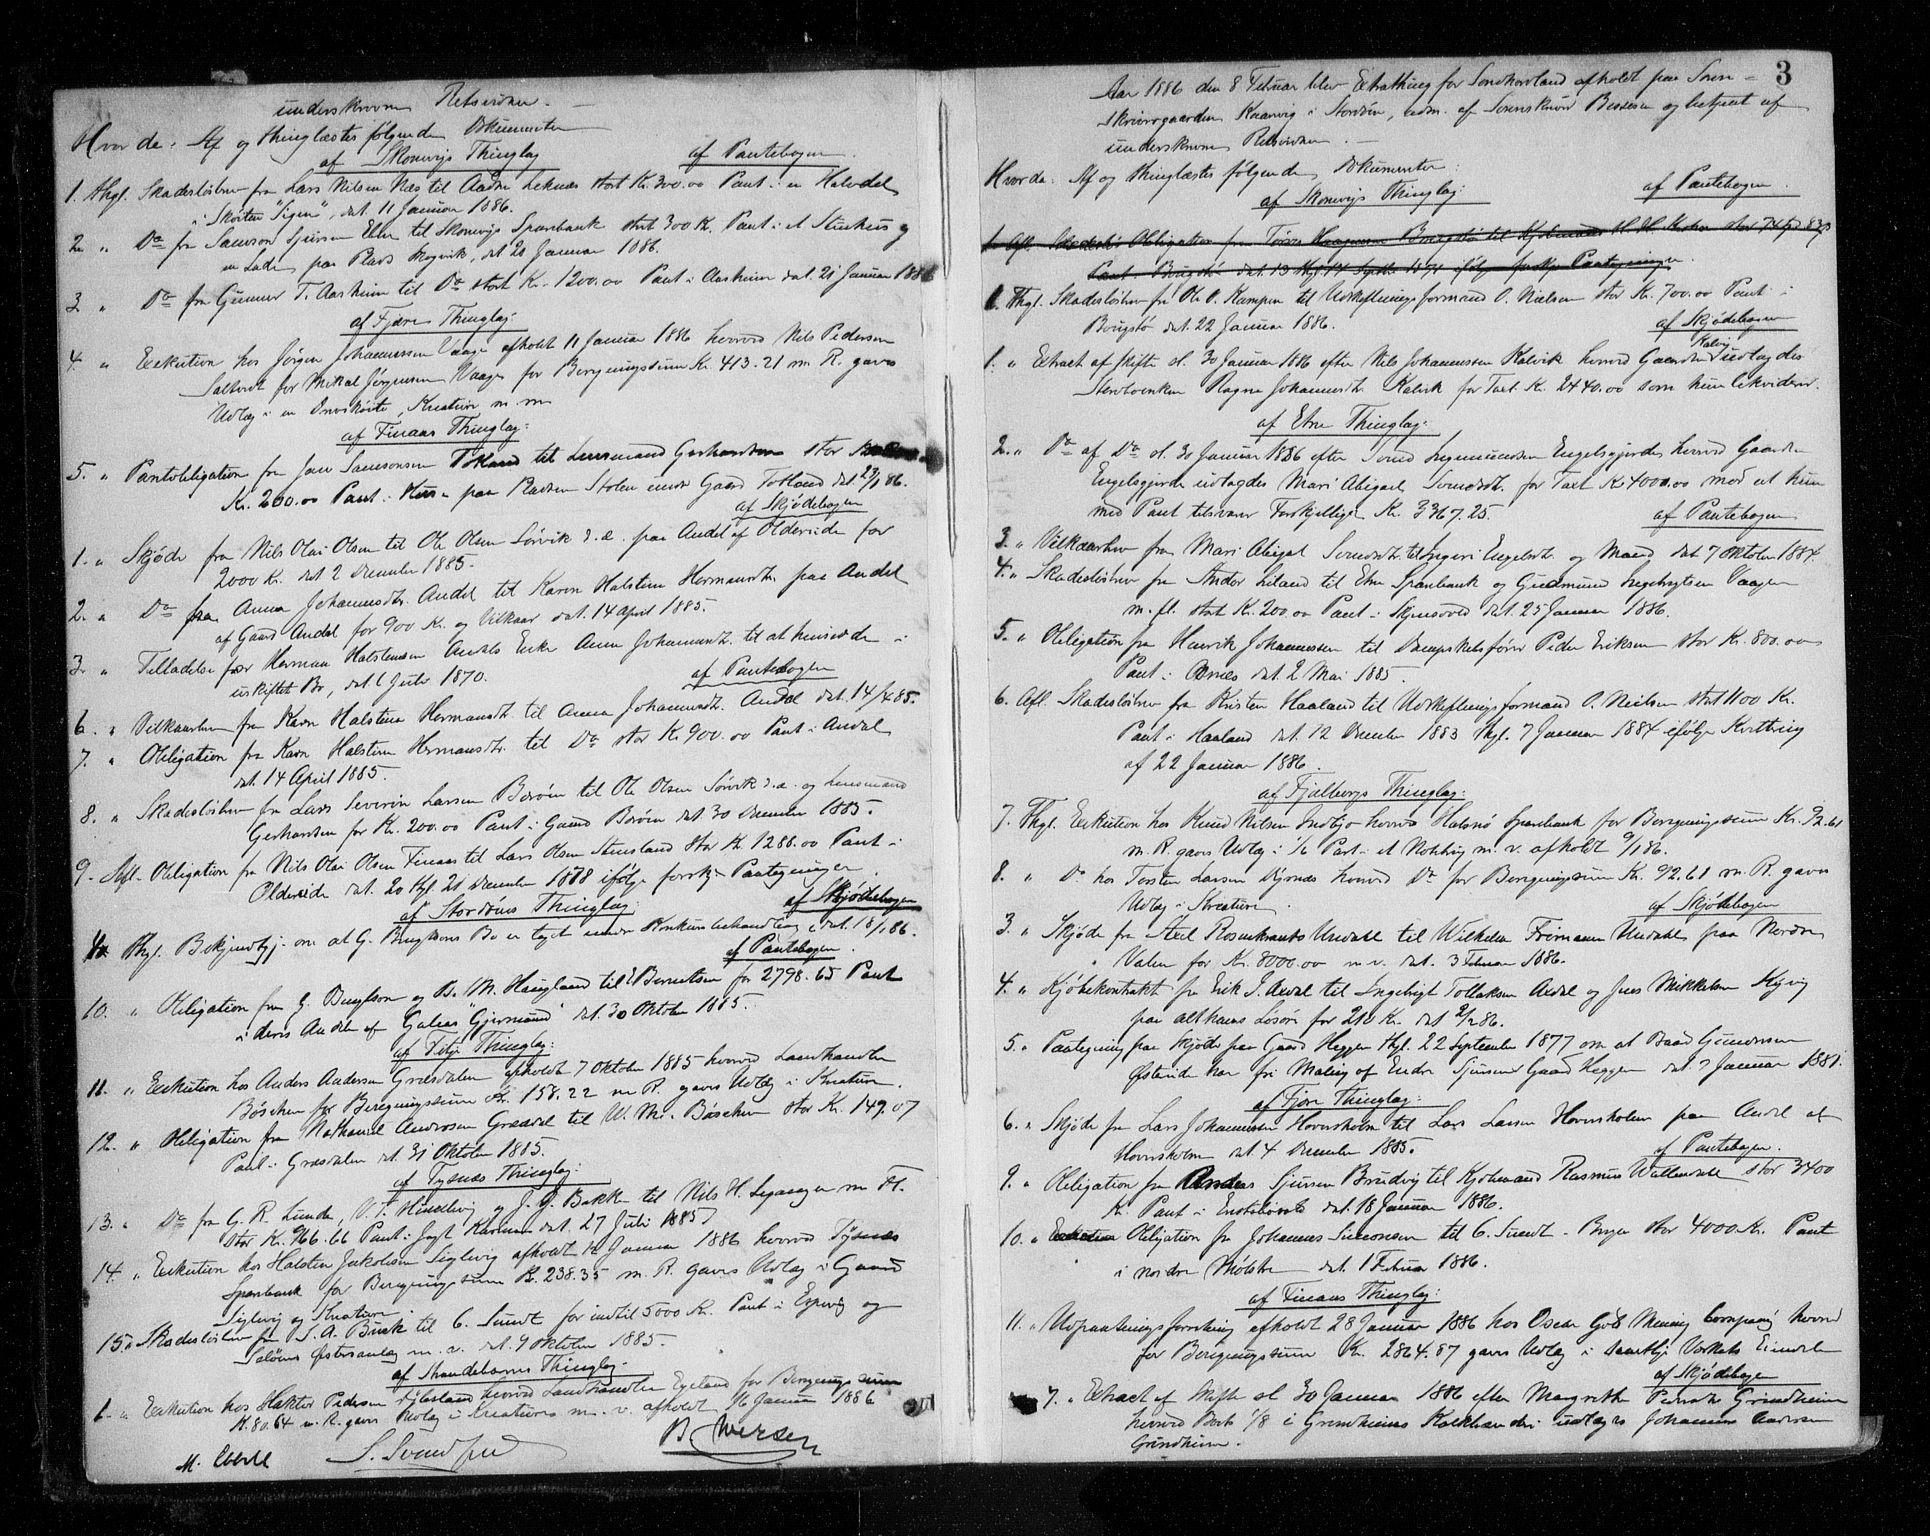 underskrevne Retsvidner. —
Hvorda: Af og thinglæstes følgende Dokumenter
af Skonevigs Thinglag
af Pantebogen.
1. thgl. Skadesløsbrev fra Lars Nilsen Næs til Aadne Leknæs stort Kr. 300.00 Pant i en Halvdel
i Skøiten "Sigen", dat. 11 Januar 1886.
2. " Do fra Samson Sjursen Ebne til Skonevigs Sparebank stort 300 Kr. Pant i et Stuehus og
en Lade paa Plads Skogvik, dat. 20 Januar 1886.
3 " Do fra Gunnar T. Aarheim til Do stort Kr. 1200.00 Pant i Aarheim dat. 21 Januar 1886
af Fjære Thinglag:
4. " Exekution hos Jørgen Johannessen Vaage afholdt 11 Januar 1886 hvorved Nils Pedersen
Saltvedt for Mikal Jørgensen Vaage for Beregningssum Kr. 413.21 m R. gaves
Udlæg i en Snøskøite, Kreature m. m
af Finaas Thinglag:
5. " Pantobligation fra Jan Samsonsen Tokland til Lensmand Gerhardsen stor
Kr. 200.00 Pant i Huse paa Pladsen Stolen under Gaard Totland dat. 23/1 86.
af Skjødebogen
1. " Skjøde fra Nils Olai Olsen til Ole Olsen Sørvik d. æ. paa Andel af Oldereide for
2000 Kr. dat 2 December 1885.
2. " Do fra Anna Johannesdtr. Andal til Karen Halstine Hermansdtr. paa Andel
af Gaard Andal for 900 Kr. og Vilkaar dat. 14 April 1885.
3 " Tilladelse for Herman Halstensen Andals Enke Anna Johannesdtr. til at hensidde i
uskiftet Bo, dat. 6 Juli 1870.
af Pantebogen
6. " Vilkaarsbrev fra Karen Halstine Hermansdtr. til Anna Johannesdtr. Andal dat. 14/4 85.
7. " Obligation fra Karen Halstine Hermansdtr. til Do stor Kr. 900.00 Pant i Andal
dat. 14 April 1885.
8. " Skadesløsbrev fra Lars Severin Larsen Børøen til Ole Olsen Sørvik d. æ. og Lensmand
Gerhardsen for Kr. 200.00 Pant i Gaard Børøen dat 30 December 1885.
9. Afl. Obligation fra Nils Olai Olsen Finaas til Lars Olsen Stensland stor Kr. 1288.00 Pant i
Oldereide dat. 20 thgl. 21 December 1878 ifølge forskj. Pantegninger.
af Stordøens Thinglag:
af Skjødebogen
4. thgl. Bekjendtgj. om at G. Bugssons Bo er taget under Konkursbehandling, dat. 18/1 86.
af Pantebogen.
10. " Obligation fra G. Bugsson og B. M. Haugland til Berentsen for 2798.65 Pant
i deres Andele af Galeas "Gjermund" dat. 30 Oktober 1885.
af Fitje Thinglag:
11. " Exekution hos Anders Andersen Græsdalen afholdt 7 Oktober 1885 hvorved Landhandler
Böschen for Beregningssum Kr. 158.22 m R. gaves Udlæg i Kreature.
12. " Obligation fra Nathanael Andersen Græsdal til W. M. Böschen stor Kr. 149.07
Pant i Græsdalen dat. 31 Oktober 1885.
af Tysnæs Thinglag:
13. " Do fra G. R. Lunde, V. T. Hindlevig og J. J. Bakke til Nils H. Leganger m Fl.
stor Kr. 966.66 Pant i Jagt Karmen dat. 27 Juli 1885
14. " Exekution hos Halsten Jakobsen Siglevig afholdt 14 Januar 1886 hvorved Tysnæs
Sparebank for Beregningssum Kr. 238.35 m. R. gaves Udlæg i Gaard
Siglevig og Kreature.
15. " Skadesløsbrev fra S. A. Buck til C. Sundt for indtil 5000 Kr. Pant i Espevig og
Seløens Østersanlæg m. v. dat. 9 Oktober 1885.
af Strandebarms Thinglag.
6. " Exekution hos Haktor Pedersen Fykesund hvorved Landhandler Egeland for Beregningssum
Kr. 80.64 m. R. gaves Udlæg i Kreature m. v. afholdt 16 Januar 1886
M. Eberle
B. Iversen
3
Aar 1886 den 8 Februar blev Extrathing for Søndhordland afholdt paa Soren-
skrivergaarden Kaarvig i Stordøen, adm. af Sorenskriver Bessesen og betjent af
underskrevne Retsvidner. —
Hvorda: Af og thinglæstes følgende Dokumenter:
af Skonevigs Thinglag:
af Pantebogen.
1. Afl. Obligation fra Haagensen Borgstø til Kjøbmand H. H. stor 74 Spd 83
Pant i Borgstø dat. 13 thgl 14 Septbr. ifølge forskj. Pantegninger.
1. Thgl. Skadesløsbrev fra Ole O. Kampen til Udskiftningsformand O. Nielsen stor Kr. 700.00 Pant i
Borgstø dat. 22 Januar 1886.
af Skjødebogen
1. " Extract af Skifte sl. 30 Januar 1886 efter Nils Johannessen Kalvik hvorved Gaarden Kalvig udlagdes
Stervboenken Ragna Johannesdtr. Kalvik for Taxt Kr. 2440.00 som hun likviderer.
af Etne Thinglag:
2. " Do af Do sl. 30 Januar 1886 efter Svend Ingemundsen Engelsgjerde hvorved Gaarden
Engelsgjerde udlagdes Mari Abigael Svendsdtr. for Taxt Kr 4000.00 mod at hun
med Pant tilsvarer Forskjellige Kr. 3367.25.
af Pantebogen
3. " Vilkaarsbrev fra Mari Abigael Svendsdtr. til Ingeri Engelsdtr og Mand dat 7 Oktober 1884.
4. " Skadesløsbrev fra Andor Leland til Etne Sparebank og Gudmund Ingebrigtsen Vaagen
m. fl. stort Kr. 200.00 Pant i Skjensvold dat. 25 Januar 1886.
5. " Obligation fra Henrik Johannessen til Dampskibsfører Peder Eriksen stor Kr. 800.00
Pant i Ørnæs dat 2 Mai 1885.
6. Afl. Skadesløsbrev fra Kristen Haaland til Udskiftningsformand O. Nielsen stort 1100 Kr.
Pant i Haaland dat. 12 December 1883 thgl. 7 Januar 1884 ifølge Kvittering
af 22 Januar 1886.
af Fjelbergs Thinglag:
7. Thgl. Exekution hos Knud Nilsen Indbjo hvorved Halsnø Sparebank for Beregningssum Kr. 92.61
m. R. gaves Udlæg i 1/6 Part i et Notbrug m. v. afholdt 9/1 86.
8. " Do hos Torsten Larsen Dyrnæs hvorved Do for Beregningssum Kr. 92.61 m. R. gaves
Udlæg i Kreature.
af Skjødebogen
3. " Skjøde fra Axel Rosenkrants Undahl til Wilhelm Friman Undahl paa Nordre
Valen for Kr. 8000.00 m v. dat. 3 Februar 1886.
4. " Kjøbekontrakt fra Erik J. Axdal til Ingebrigt Tollaksen Axdal og Jens Mikkelsen Kyvig
paa althans Løsøre for 210 Kr. dat 2/2 86.
5. " Paategning paa Skjøde paa Gaard Heggen thgl. 22 September 1877 om at Baard Gunnersen
Østenlie har fri Maling af Endre Sjursens Gaard Heggen dat. 7 Januar 1881.
af Fjære Thinglag:
6. " Skjøde fra Lars Johannessen Hoversholm til Lars Larsen Hoversholm paa Andel af
Hoversholm dat 4 December 1885.
af Pantebogen.
9. " Obligation fra Andreas Sjursen Brudvig til Kjøbmand Rasmus Wallendahl stor 3400
Kr. Pant i dat. 18 Januar 1886.
10. " Obligation fra Johannes Simonsen til C. Sundt - Bergen stor 4000 Kr. Pant
i nordre Mølster dat. 1 Februar 1886.
af Finaas Thinglag:
11. " Udpantningsforretning afholdt 28 Januar 1886 hos Oscar Gold Mining Company hvorved
for Beregningssum Kr. 2864.87 gaves Udlæg i samtlige Værkets Eiendele
af Skjødebogen
7. " Extract af Skifte sl. 30 Januar 1886 efter Margrethe Pedersdtr Grindheim
hvorved Part 1/8 i Grindheims udlagdes Johannes Andersen
Grindheim.